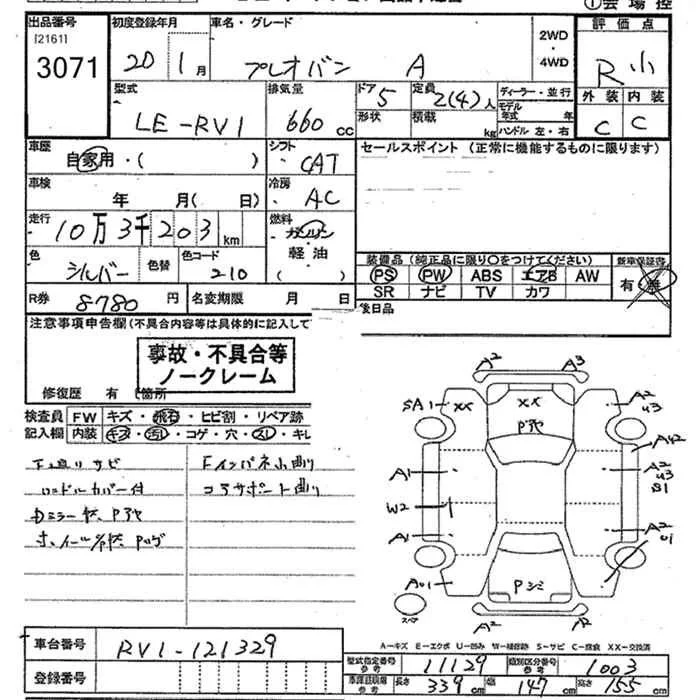 出品番号
[2161]
3071
初度登録年月
20 1月
車名・グレード
プレオバン A
2WD
・
4WD
評価点
R 小
外装 内装
C C
型式
LE-RV1
排気量
660 CC
ドア
5
形状
定員
2(4)人
積載
kg
ディーラー・並行
モデル
年式 年
ハンドル 左・右
車歴
自家用・( )
シフト
CAT
セールスポイント (正常に機能するものに限ります)
車検
年 月( 日)
冷房
AC
走行
10万3千203km
燃料
ガソリン
軽油
( )
色
シルバー
色替
色コード
210
装備品 (純正品に限り○をつけてください)
新車保証書
PS PW ABS エアB AW
SR ナビ TV カワ
有 無
R券
8780円
名変期限 月 日
後日品
注意事項申告欄(不具合内容等は具体的に記入して
事故・不具合等
ノークレーム
修復歴 有 箇所
検査員
記入欄
FW キズ・飛石・ヒビ割・リペア跡
内装 キズ・汚レ・コゲ・穴・スレ・キレ
下廻りサビ
Fインパネ小曲り
コアサポート曲り
A2 A3
SA1 XX XX A2
U3
Pアヤ
A1 A2
U3
B1
W2
A1 A2
U1
AU1
Pシミ
スペア
A2
A-キズ E-エクボ U-凹み W-補修跡 S-サビ C-腐食 XX-交換済
車台番号
RV1-121329
登録番号
型式指定番号
参考
11129
類別区分番号
参考
1003
参考
長さ 339cm
幅 147cm
高さ 155cm